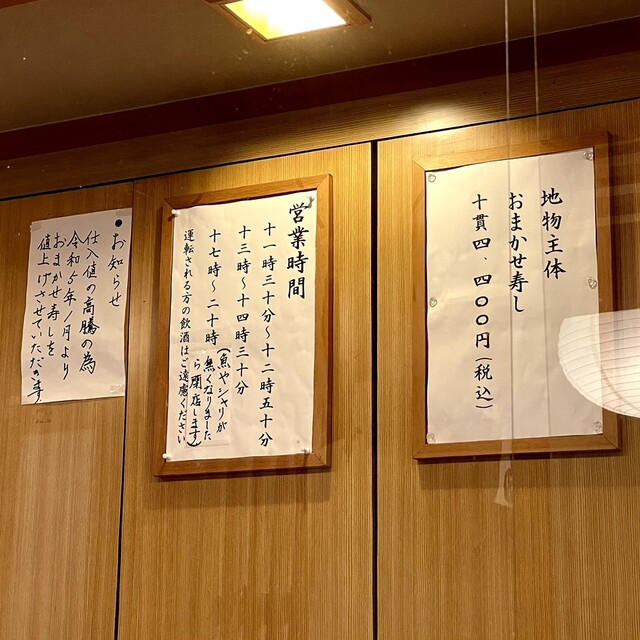 地物主体
おまかせ寿し
十貫四、四〇〇円(税込)
営業時間
十一時三十分〜十二時五十分
十三時〜十四時三十分
十七時〜二十時
(魚やシャリが
無くなりました
ら閉店します)
運転される方の飲酒はご遠慮ください
●お知らせ
仕入値の高騰の為
令和5年1月より
おまかせ寿しを
値上げさせていただきます